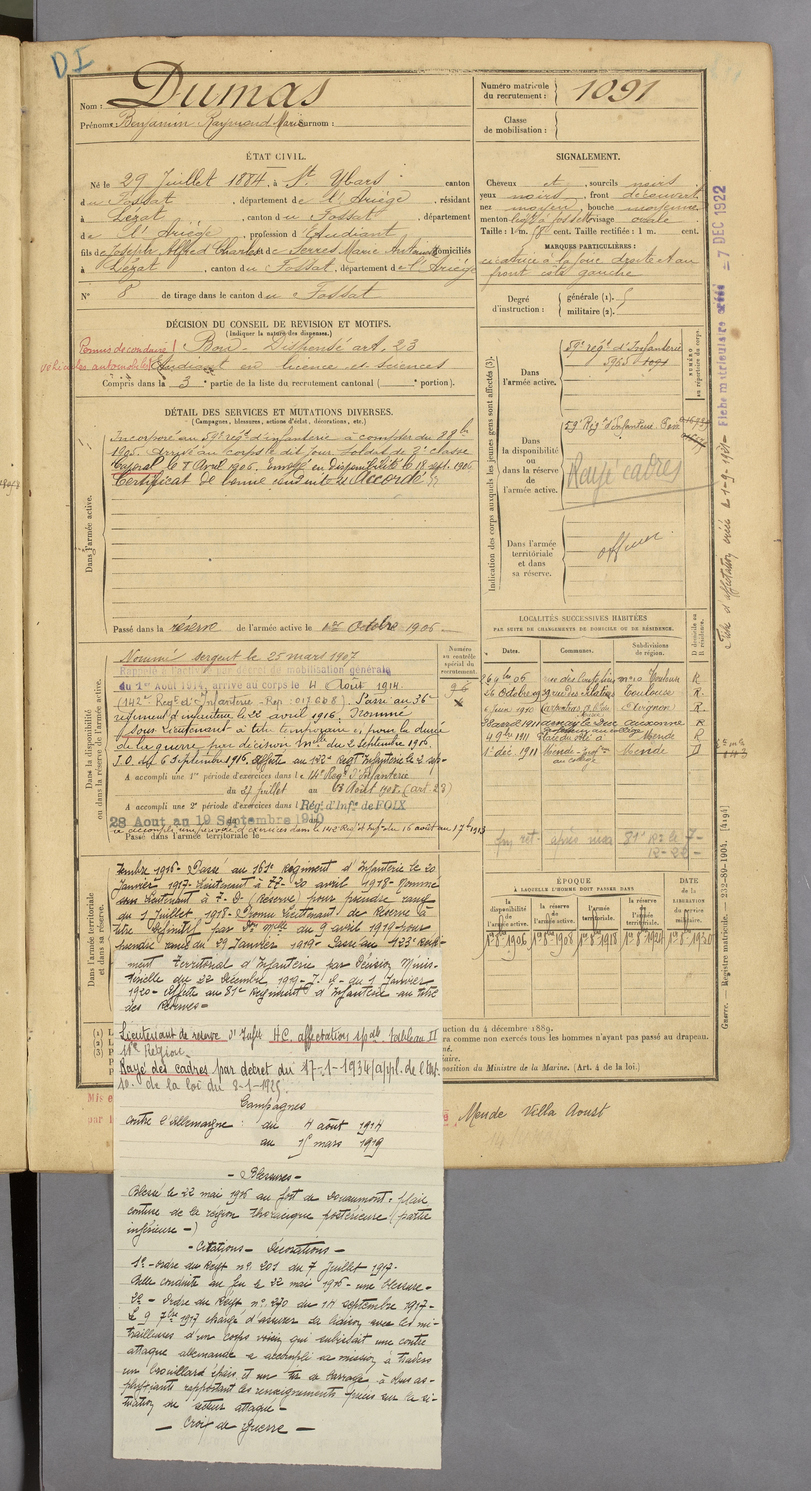 DI
Nom : Dumas
Prénoms : Benjamin Raymond Marie Surnom :
Numéro matricule du recrutement : 1091
Classe de mobilisation :
ÉTAT CIVIL.
Né le 29 Juillet 1884, à St Ybars canton
du Fossat, département de l'Ariège, résidant
à Lézat, canton du Fossat, département
de l'Ariège, profession d'Etudiant
fils de Joseph Alfred Charles et de Serres Marie domiciliés
à Lézat, canton du Fossat, département de l'Ariège
N° 8 de tirage dans le canton du Fossat
SIGNALEMENT.
Cheveux et sourcils noirs
yeux noirs, front découvert
nez moyen, bouche moyenne
menton à fossette visage ovale
Taille : 1 m. cent. Taille rectifiée : 1 m. cent.
MARQUES PARTICULIÈRES :
cicatrice à la joue droite et au
front côté gauche
Degré d'instruction : générale (1).
militaire (2).
DÉCISION DU CONSEIL DE REVISION ET MOTIFS.
(Indiquer la nature des dispenses.)
Permis de conduire Bon - Dispensé art. 23
véhicules automobiles Etudiant en licence et sciences
Compris dans la 3e partie de la liste du recrutement cantonal ( portion).
DÉTAIL DES SERVICES ET MUTATIONS DIVERSES.
(Campagnes, blessures, actions d'éclat, décorations, etc.)
Dans l'armée active.
Incorporé au 59e régt d'infanterie à compter du 8 8bre
1905. Arrivé au corps le dit jour. Soldat de 2e classe
Caporal le 8 Avril 1906. Envoyé en disponibilité le 18 sept. 1906
Certificat de bonne conduite Accordé
Passé dans la réserve de l'armée active le 1er Octobre 1906
Indication des corps auxquels les jeunes gens sont affectés (3).
Dans l'armée active.
59e régt d'Infanterie
5965
NUMÉRO au répertoire du corps.
Dans la disponibilité ou dans la réserve de l'armée active.
59e Régt d'Infanterie
Rayé cadres
Dans l'armée territoriale et dans sa réserve.
officier
Fiche matriculaire
- 7 DEC 1922
Dans la disponibilité ou dans la réserve de l'armée active.
Nommé sergent le 25 mars 1907
Rappelé à l'activité par décret de mobilisation générale
du 1er Août 1914, arrivé au corps le 4 Août 1914.
(142e Régt d'Infanterie - Rep : 017608). Passé au 36e
régiment d'infanterie le 22 avril 1916. Nommé
sous Lieutenant à titre temporaire et pour la durée
de la guerre par décision Mlle du 2 Septembre 1916
J.O. du 6 Septembre 1916. Affecté au 142e Régt Infanterie le 2 sep-
A accompli une 1re période d'exercices dans le 14e Régt d'Infanterie
du juillet au Août 1908 (art. 23)
A accompli une 2e période d'exercices dans le Régt d'Infie de FOIX
28 Aout au 19 Septembre 1910
a accompli une période d'exercices dans le 142e Régt d'Inf du 16 août au 1913
Passé dans l'armée territoriale le
Numéro au contrôle spécial du recrutement.
96
LOCALITÉS SUCCESSIVES HABITÉES
PAR SUITE DE CHANGEMENTS DE DOMICILE OU DE RÉSIDENCE.
Dates. Communes. Subdivisions de région. D domicile ou R résidence.
26 9bre 06 Toulouse R
26 Octobre 09 Toulouse R.
6 Juin 1910 Carpentras Avignon R.
1911 Auxonne R
4 9bre 1911 Mende R
1er déc 1911 Mende - prof au collège Mende D
81e RI le 7-
12-22-
Dans l'armée territoriale et dans sa réserve.
tembre 1916 - Passé au 161e Régiment d'Infanterie le 20
janvier 1917 - Lieutenant à T.T. 20 avril 1918 - Nommé
sous Lieutenant à T.D (Réserve) pour prendre rang
du 1 Juillet 1918 - Promu Lieutenant de Réserve à
titre définitif par Don Mlle du 9 avril 1919 pour
prendre rang du 29 Janvier 1919 - Passé au 123e Régi-
ment Territorial d'Infanterie par Décision Minis-
térielle du 22 Décembre 1919 - J.O. du 1 Janvier
1920 - Affecté au 81e Régiment d'Infanterie au titre
des Réserves -
ÉPOQUE
À LAQUELLE L'HOMME DOIT PASSER DANS
la disponibilité de l'armée active. la réserve de l'armée active. l'armée territoriale. la réserve de l'armée territoriale.
DATE de la LIBÉRATION du service militaire.
1er 8bre 1906 1er 8bre 1908 1er 8bre 1918 1er 8bre 1924 1er 8bre 1930
Guerre. — Registre matricule. — 232-80-1904. [4194]
Lieutenant de réserve d'Infie H.C. affectation spéle tableau II
16e Région
Rayé des cadres par décret du 17-1-1934 (appl. de l'Art.
10 de la loi du 8-1-1925.
ruction du 4 décembre 1889.
ra comme non exercés tous les hommes n'ayant pas passé au drapeau.
position du Ministre de la Marine. (Art. 4 de la loi.)
Mis e
par l
Mende Villa Aoust
Campagnes
contre l'Allemagne : du 4 août 1914
au 15 mars 1919
- Blessures -
Blessé le 22 mai 1916 au fort de Douaumont : plaie
contuse de la région thoracique postérieure (partie
inférieure -)
- Citations - Décorations -
1° - ordre du Régt n° 201 du 7 Juillet 1917 -
Belle conduite au feu le 22 mai 1916 - une blessure -
2° - Ordre du Régt n° 270 du 17 septembre 1917 -
Le 9 7bre 1917 chargé d'assurer la liaison avec les mi-
trailleuses d'un corps voisin qui subissait une contre
attaque allemande a accompli sa mission à travers
un brouillard épais et un tir de barrage à obus as-
phyxiants rapportant des renseignements précis sur la si-
tuation du secteur attaqué -
— Croix de Guerre —